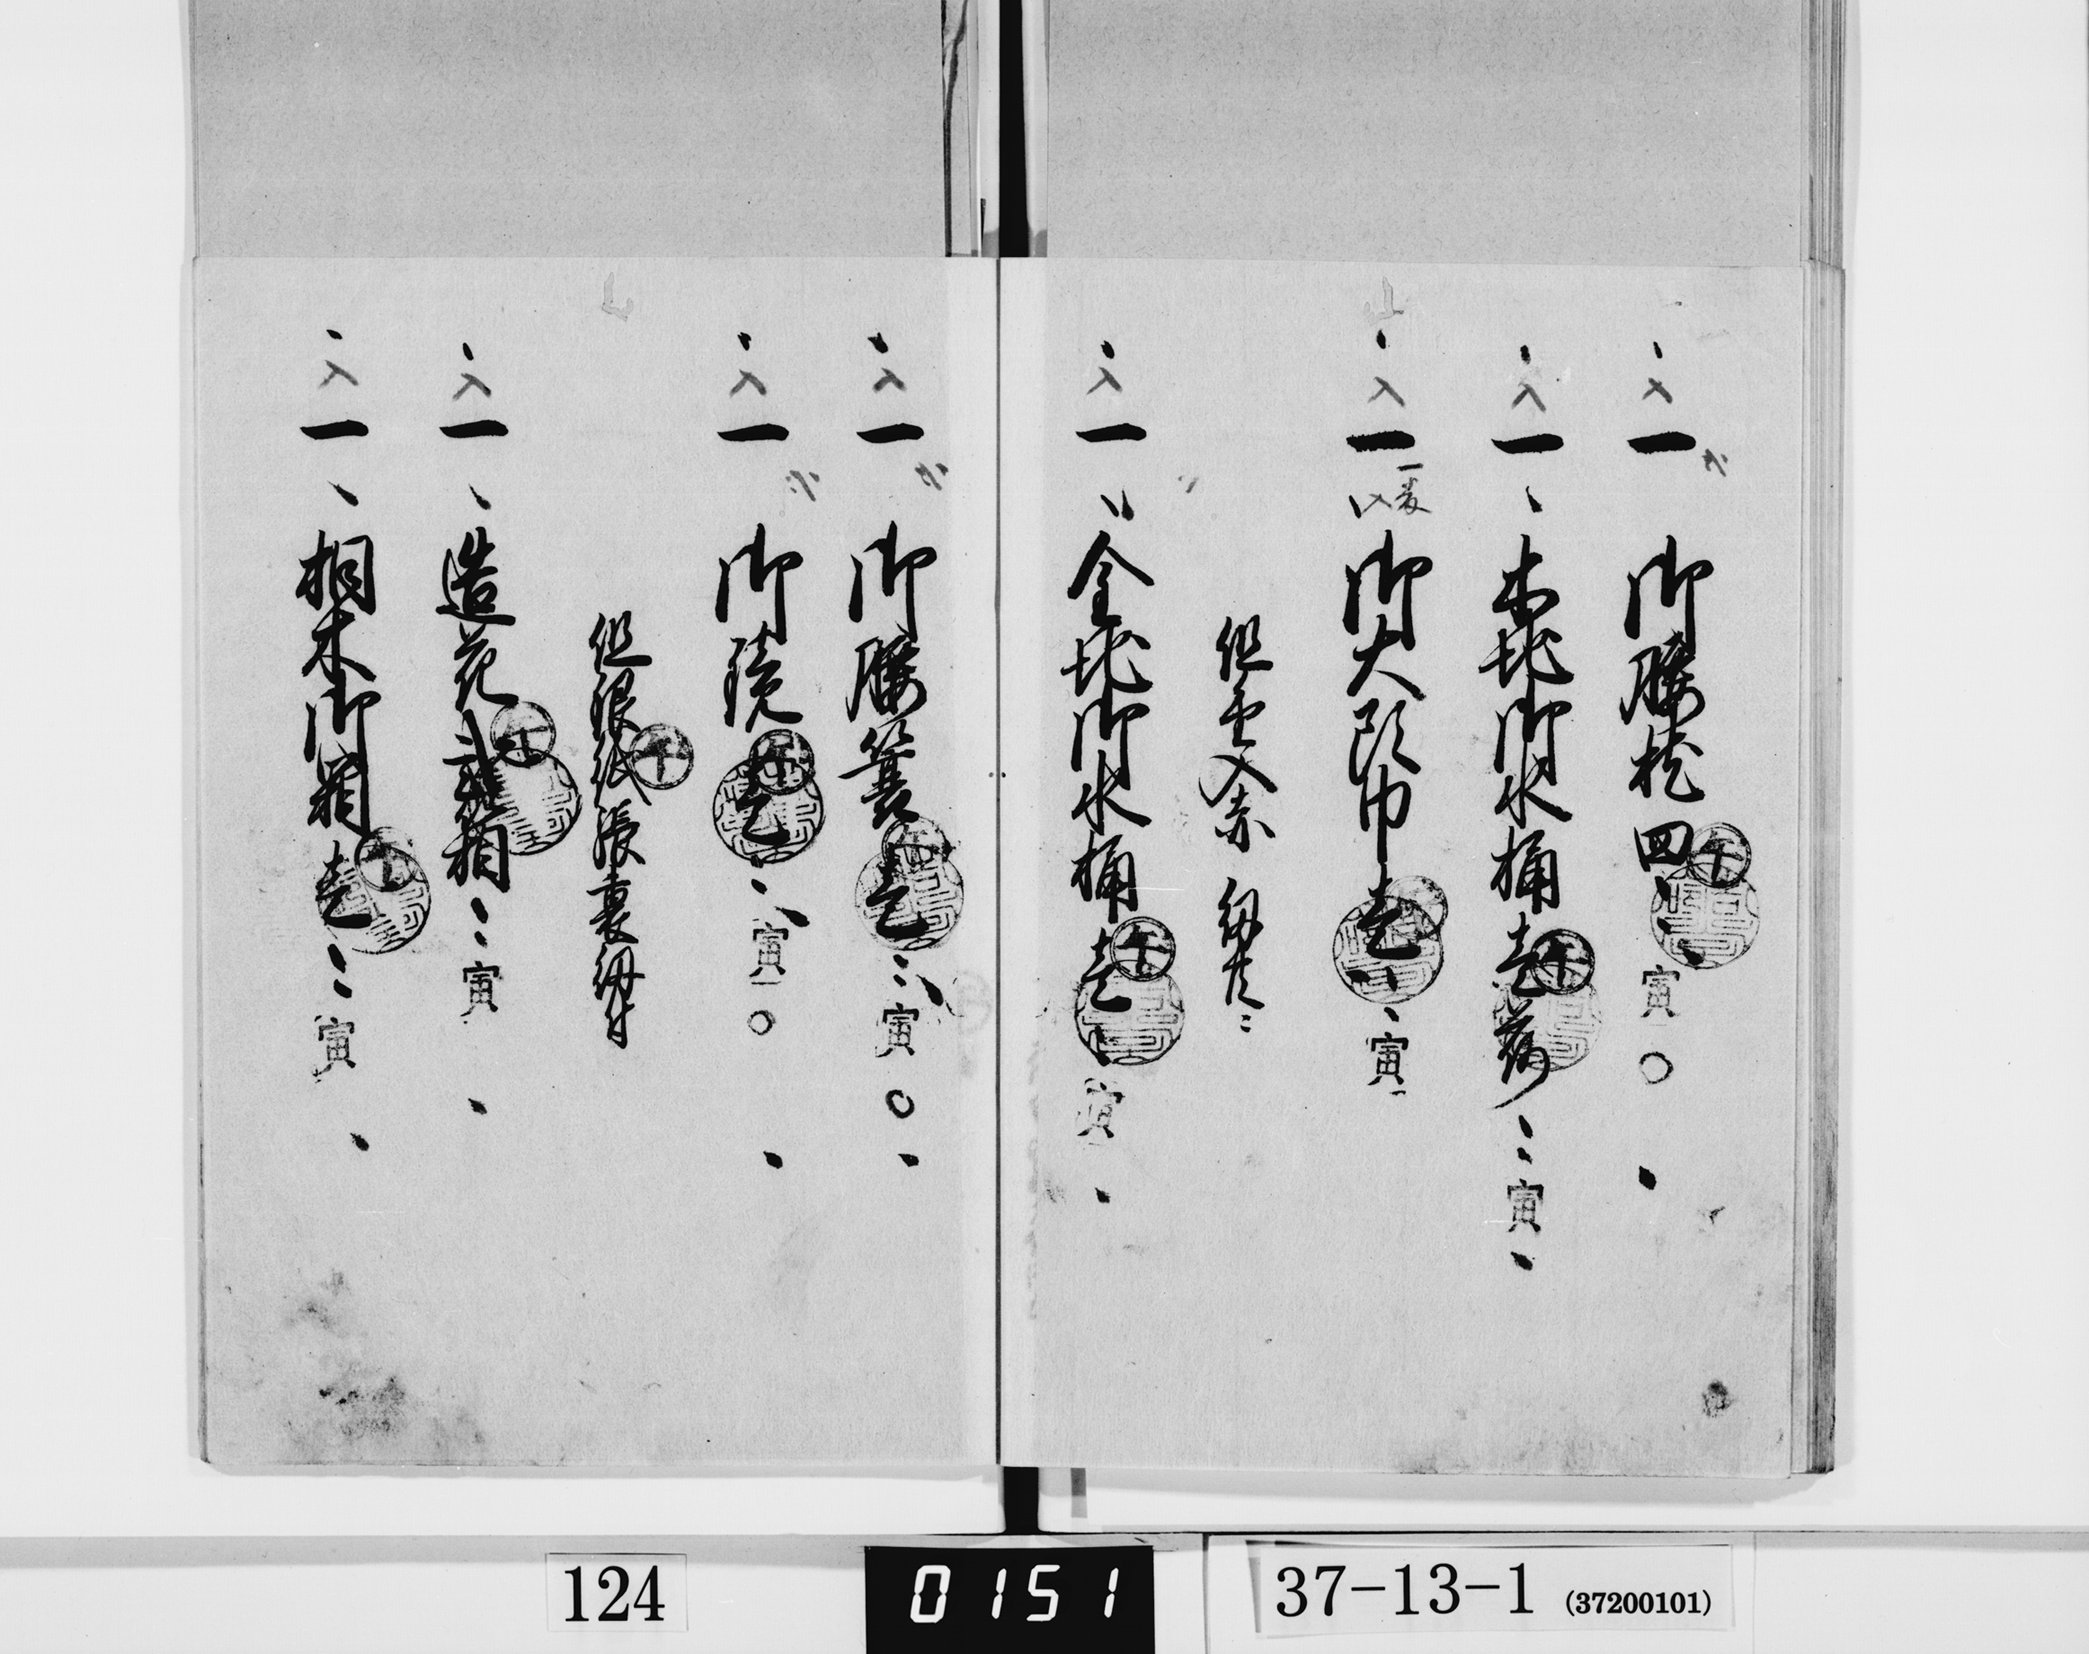 一 御腰桄 四 寅
一 木地御水桶 壱荷 寅
一 御大頭巾 壱 寅
但 入赤 紐共
一 金地御水桶 壱 寅
一 御腰簑 壱 寅
一 御鏡 壱 寅
但銀紙張裏紐付
一 造花 弐箱 寅
一 桐木御箱 壱 寅
124
0151
37-13-1 (37200101)